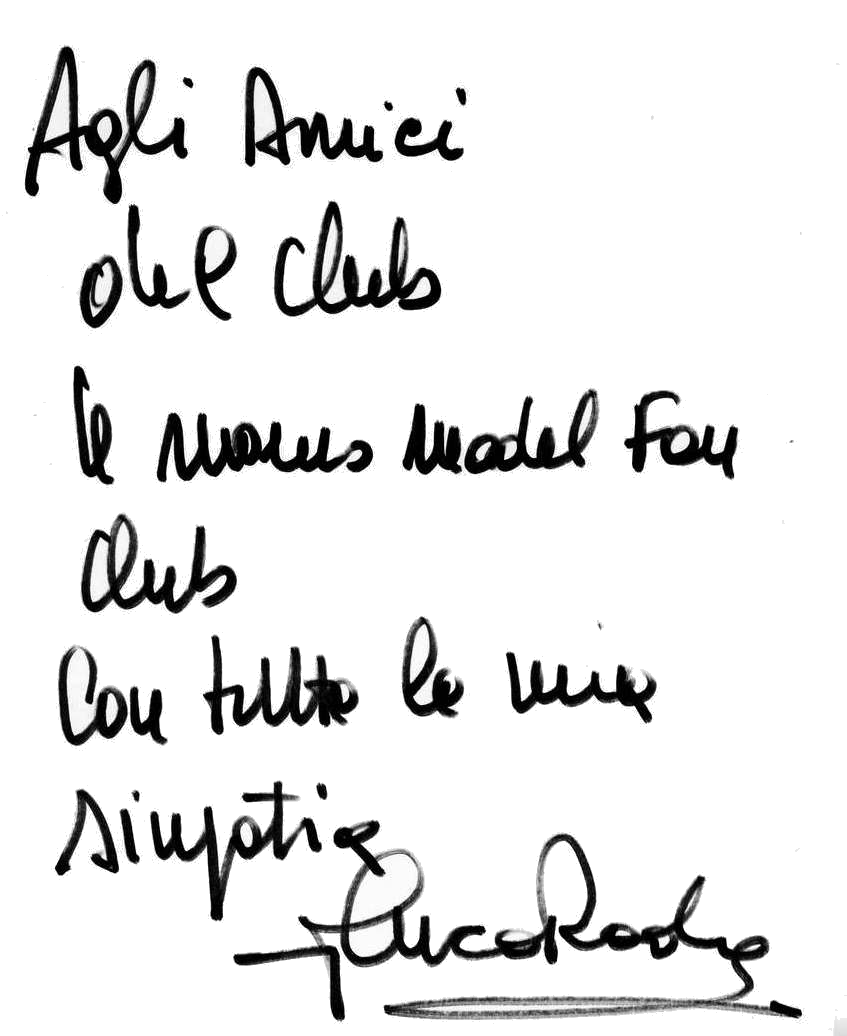 Agli Amici
del Club
le Mans Model Fan
Club
Con tutta la mia
simpatia